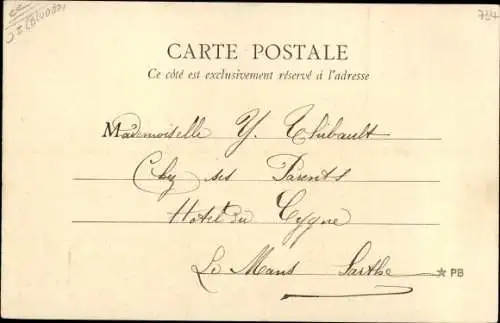 7234
CARTE POSTALE
Ce côté est exclusivement réservé à l'adresse
Mademoiselle Y. Thibault
Chez ses Parents
Hotel du Cygne
Le Mans Sarthe
PB